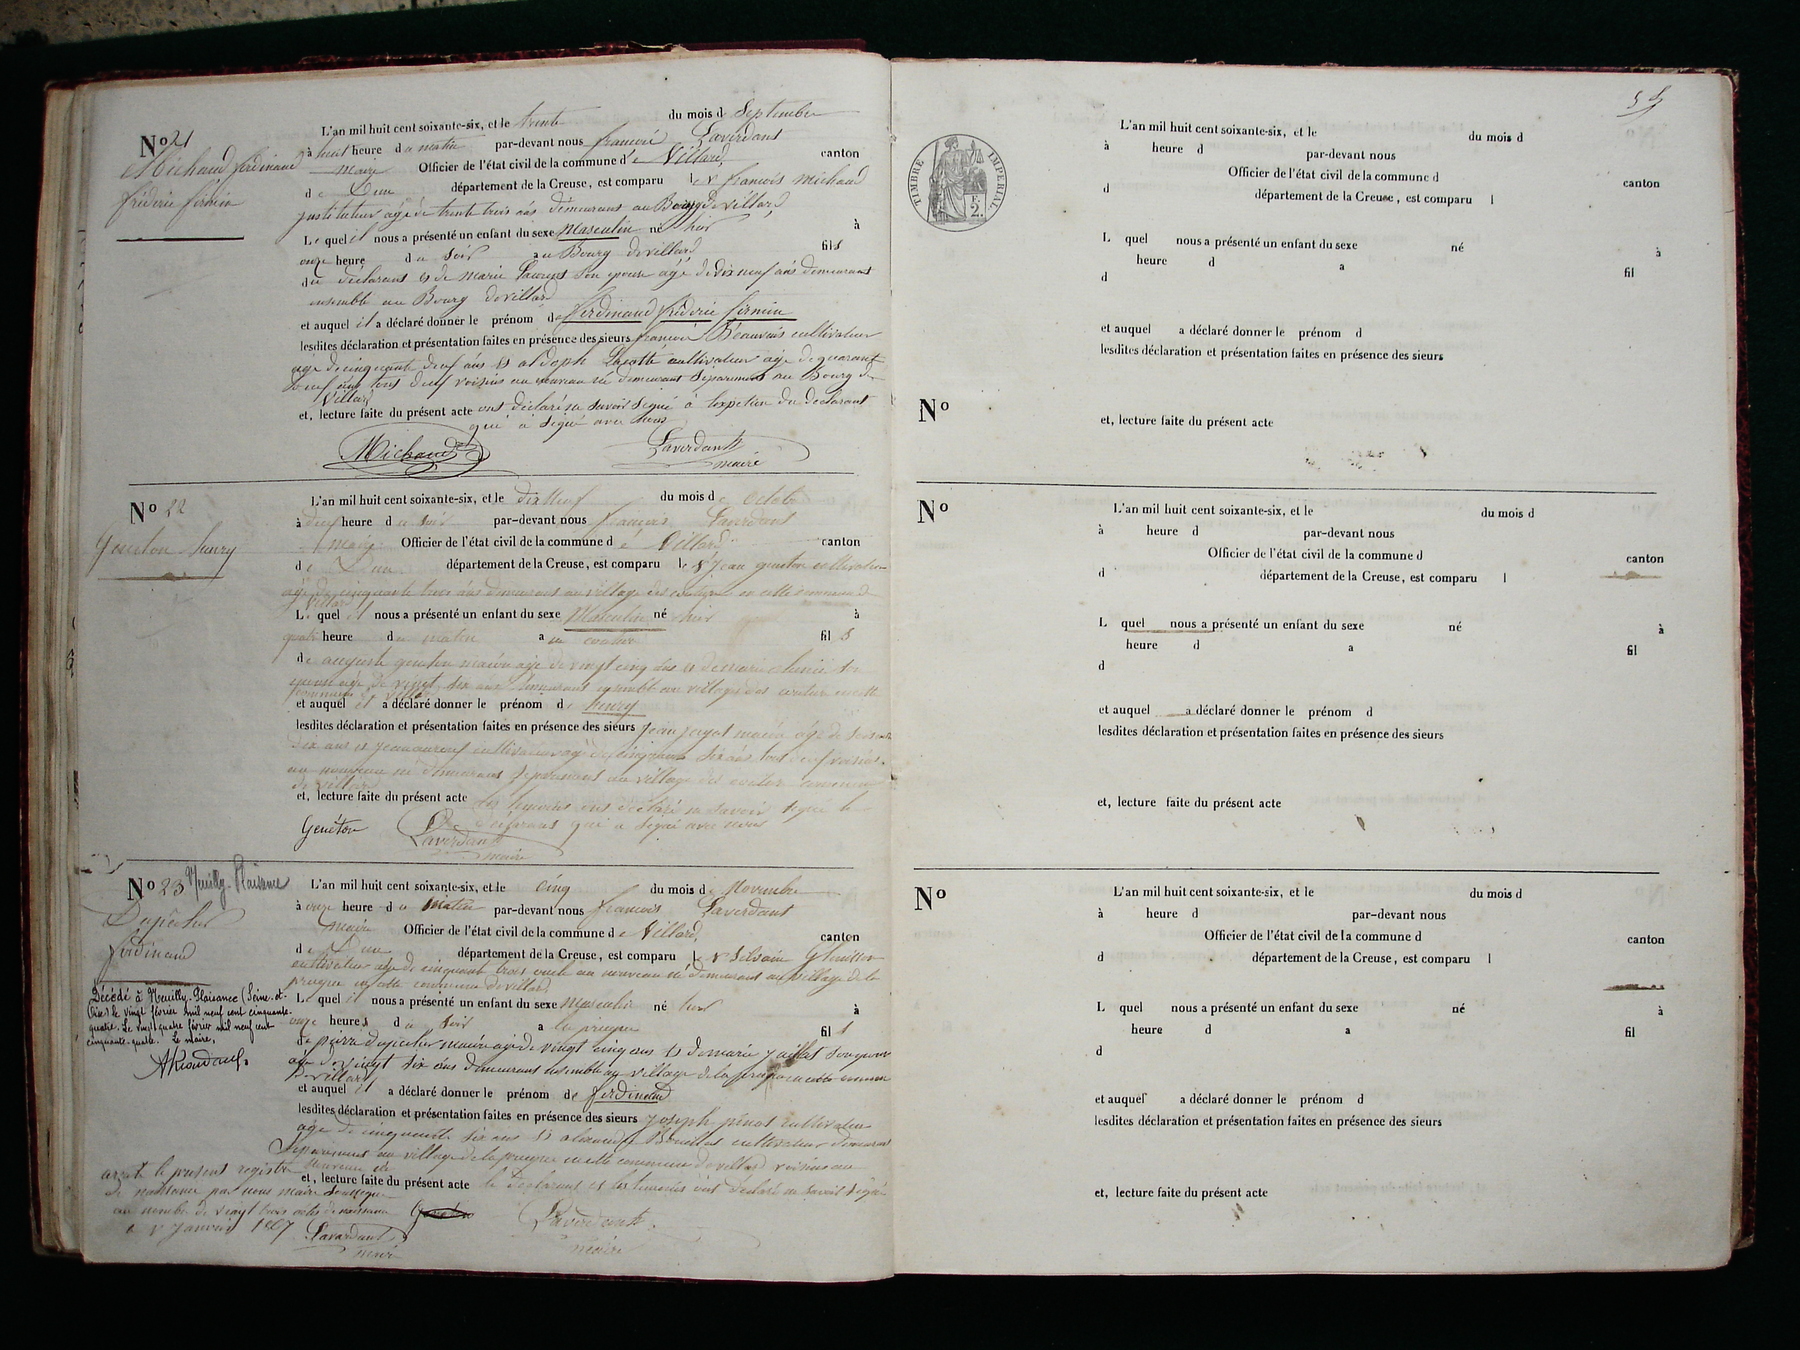 No 21
Michaud ferdinand
fréderic firmin
L'an mil huit cent soixante-six, et le trente du mois d Septembre
à huit heure du matin par-devant nous francois Laverdant
maire Officier de l'état civil de la commune de Villard, canton
de Dun département de la Creuse, est comparu le sr francois Michaud
instituteur agé de trente trois ans demeurant au Bourg de villard
Le quel il nous a présenté un enfant du sexe Masculin né hier à
onze heure du soir au Bourg de villard fils
du déclarant et de marie Laurent son epouse agé de dix neuf ans demeurant
ensemble au Bourg de villard
et auquel il a déclaré donner le prénom de ferdinand fréderic firmin
lesdites déclaration et présentation faites en présence des sieurs francois Beauvais cultivateur
agé de cinquante deuf ans et aldoph Lacotte cultivateur agé de quarant
neuf ans tous deuf voisins au nouveau né demeurant séparément au Bourg de
Villard
et, lecture faite du présent acte ont déclaré ne savoir signé à lexpetion du declarant
qui a signé avec nous
Michaud Laverdant
maire
No 22
Genéton henry
L'an mil huit cent soixante-six, et le dix Neuf du mois de Octobre
à deuf heure du soir par-devant nous francois Laverdant
maire Officier de l'état civil de la commune de Villard canton
de Dun département de la Creuse, est comparu le sr Jean genéton cultivateur
agé de cinquante trois ans demeurant au village des en cette commune de
villard
Le quel il nous a présenté un enfant du sexe Masculin né hier à
quatre heure du matin a au fils
de auguste genéton macon agé de vingt cinq ans et de marie son
epouse agé de vingt six ans demeurant ensemble au village des en cette
commune de villard
et auquel il a déclaré donner le prénom de henry
lesdites déclaration et présentation faites en présence des sieurs Jean macon agé de soixante
dix ans et cultivateur agé de cinquante six ans tout deuf voisins
au nouveau né demeurant séparément au village des commune
de villard
et, lecture faite du présent acte les temoins ont déclaré ne savoir signé le
declarant qui a signé avec nous
Genéton Laverdant
maire
No 23 Neuilly-Plaisance
Dupechet
ferdinand
Décédé à Neuilly-Plaisance (Seine-et-
Oise) le vingt février mil neuf cent cinquante-
quatre. Le vingt quatre février mil neuf cent
cinquante-quatre. Le maire,
L'an mil huit cent soixante-six, et le cinq du mois de Novembre
à onze heure du matin par-devant nous francois Laverdant
maire Officier de l'état civil de la commune de Villard, canton
de Dun département de la Creuse, est comparu le sr Silvain
cultivateur agé de cinquante trois oncle au nouveau né demeurant au village de la
en cette commune de villard
Le quel il nous a présenté un enfant du sexe Masculin né hier à
onze heures du soir a la fils
de pierre dupechet macon agé de vingt cinq ans et de marie son epouse
agé de vingt six ans demeurant ensemble au village de la en cette commune
de villard
et auquel il a déclaré donner le prénom de ferdinand
lesdites déclaration et présentation faites en présence des sieurs Joseph pinot cultivateur
agé de cinquante six ans et cultivateur demeurant
séparément au village de la en cette commune de villard voisins au
nouveau né
et, lecture faite du présent acte le declarant et les temoins ont déclaré ne savoir signé
Laverdant
maire
areté le present registre
de naissance par nous maire soussigné
au nombre de vingt trois actes de naissance
le 1r Janvier 1867
Laverdant
maire
55
TIMBRE IMPERIAL
F.
2.
L'an mil huit cent soixante-six, et le du mois d
à heure d par-devant nous
Officier de l'état civil de la commune d canton
d département de la Creuse, est comparu l
L quel nous a présenté un enfant du sexe né à
heure d a fil
d
et auquel a déclaré donner le prénom d
lesdites déclaration et présentation faites en présence des sieurs
No
et, lecture faite du présent acte
No
L'an mil huit cent soixante-six, et le du mois d
à heure d par-devant nous
Officier de l'état civil de la commune d canton
d département de la Creuse, est comparu l
L quel nous a présenté un enfant du sexe né à
heure d a fil
d
et auquel a déclaré donner le prénom d
lesdites déclaration et présentation faites en présence des sieurs
et, lecture faite du présent acte
No
L'an mil huit cent soixante-six, et le du mois d
à heure d par-devant nous
Officier de l'état civil de la commune d canton
d département de la Creuse, est comparu l
L quel nous a présenté un enfant du sexe né à
heure d a fil
d
et auquel a déclaré donner le prénom d
lesdites déclaration et présentation faites en présence des sieurs
et, lecture faite du présent acte